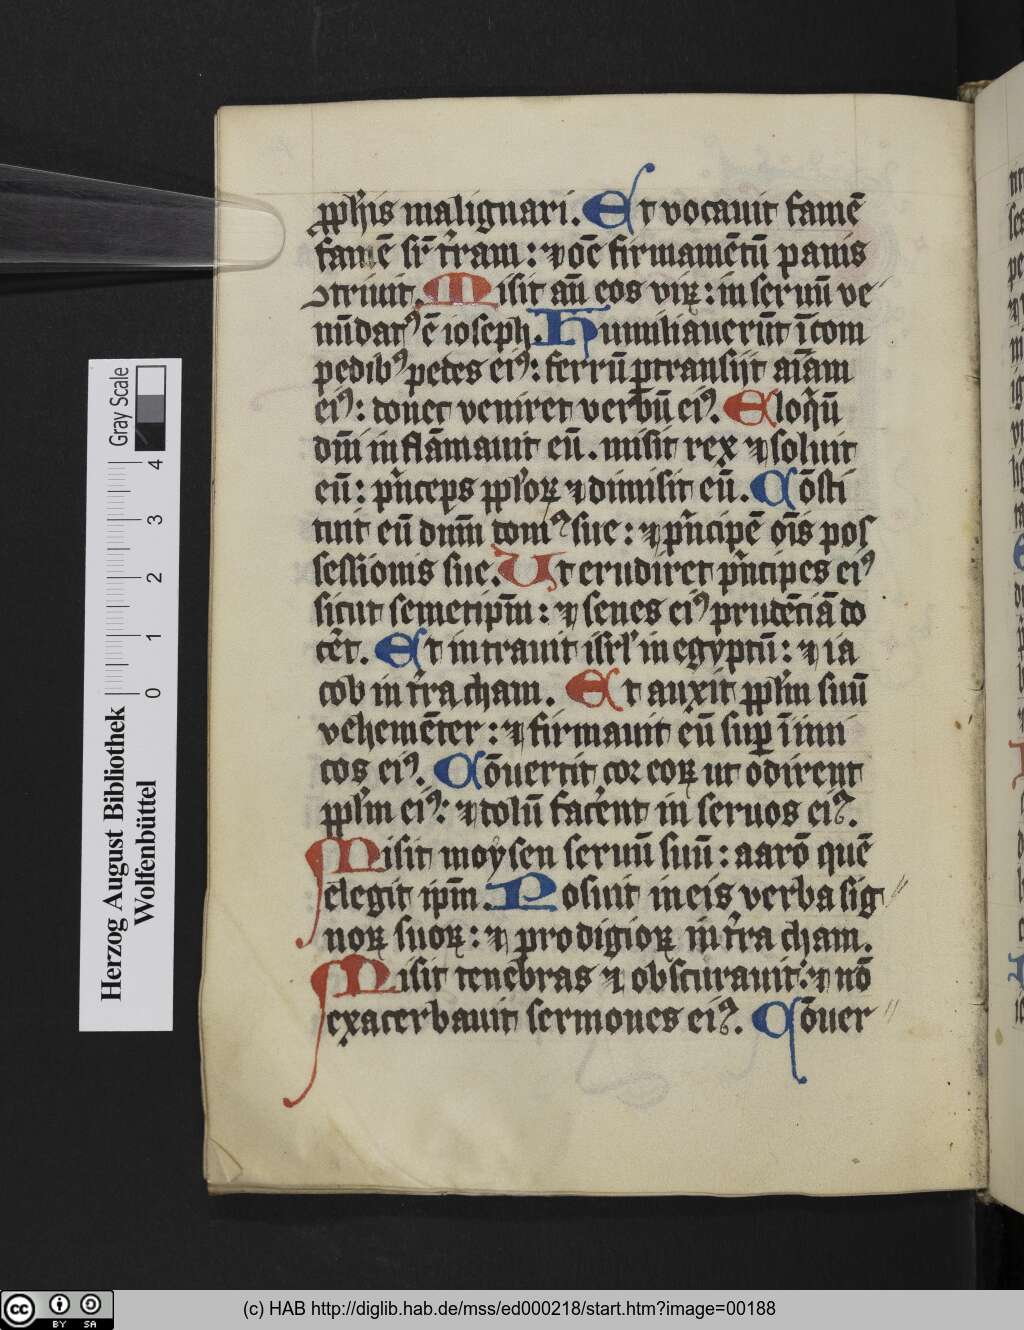 ꝓpħis malignari. Et vocauit famē
famē sr̄ t̄ram: ⁊ oē firmamētū panis
ꝯtriuit. Misit an̄ eos virꝫ: in seruū ve
nūdatꝰ ē ioseph. Humiliauerūt ī com
pedibꝰ pedes eiꝰ: ferrū ꝑtransijt aīam
eiꝰ: donec veniret verbū eiꝰ. Eloqͥū
dn̄i inflāmauit eū. misit rex ⁊ soluit
eū: pͥnceps ppl̓oꝝ ⁊ dimisit eū. Cōsti
tuit eū dnm̄ domꝰ sue: ⁊ pͥncipē oīs pos
sessionis sue. Ut erudiret pͥncipes eiꝰ
sicut semetipm̄: ⁊ senes eiꝰ prudētiā do
cēt. Et intrauit isrl̓ in egyptū: ⁊ ia
cob in t̄ra cham. Et auxit ppl̓m suū
vehemēter: ⁊ firmauit eū suꝑ īimi
cos eiꝰ. Cōuertit cor eoꝝ ut odirent
ppl̓m eiꝰ: ⁊ dolū fac̄ent in seruos eiꝰ.
Misit moysen seruū suū: aarō quē
elegit ipm̄. Posuit in eis verba sig
noꝝ suoꝝ: ⁊ prodigioꝝ in t̄ra cham.
Misit tenebras ⁊ obscurauit: ⁊ nō
exacerbauit sermones eiꝰ. Cōuer
Gray Scale
4
3
2
1
0
Herzog August Bibliothek
Wolfenbüttel
cc BY SA
(c) HAB http://diglib.hab.de/mss/ed000218/start.htm?image=00188